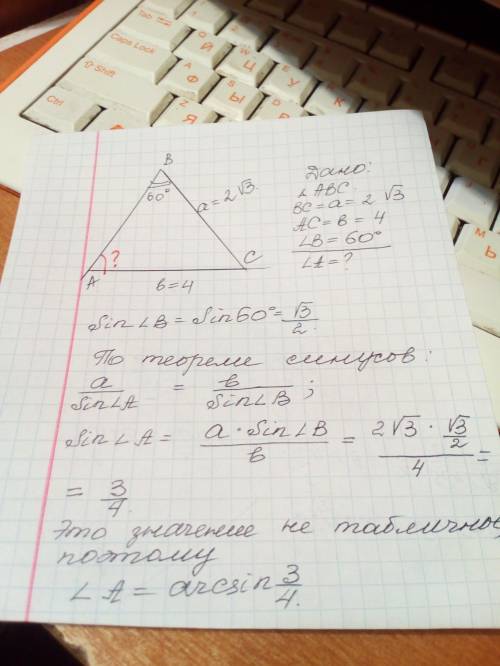 Tab
Caps Lock
Shift
Ctrl
B
60°
a = 2√3
A
?
C
b = 4
Дано:
∠ABC.
BC = a = 2√3
AC = b = 4
∠B = 60°
∠A = ?
Sin∠B = Sin60° = √3/2.
По теореме синусов:
a/Sin∠A = b/Sin∠B;
Sin∠A = a·Sin∠B/b = 2√3·√3/2/4 =
= 3/4.
Это значение не табличное,
поэтому
∠A = arcsin 3/4.